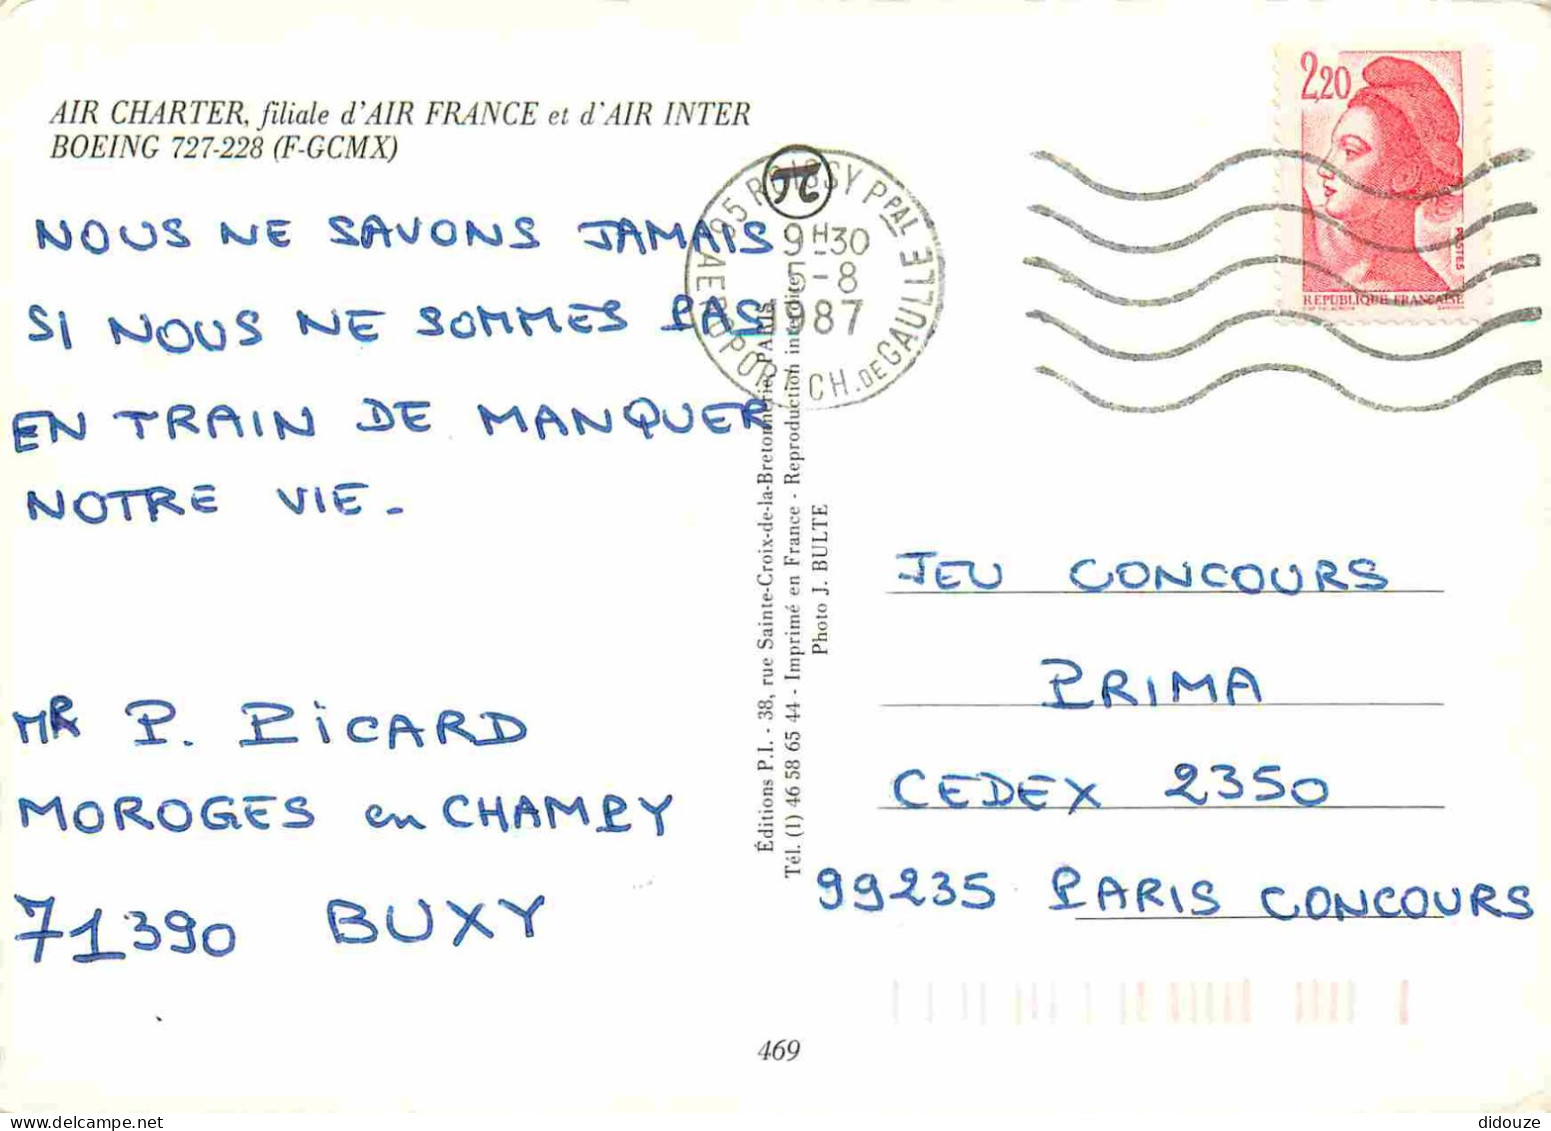 AIR CHARTER, filiale d'AIR FRANCE et d'AIR INTER
BOEING 727-228 (F-GCMX)
NOUS NE SAVONS JAMAIS
SI NOUS NE SOMMES PAS
EN TRAIN DE MANQUER
NOTRE VIE-
MR P. PICARD
MOROGES en CHAMPY
71390 BUXY
Éditions P.I. - 38, rue Sainte-Croix-de-la-Bretonnerie, PARIS
Tél. (1) 46 58 65 44 - Imprimé en France - Reproduction interdite
Photo J. BULTE
95 ROISSY PPAL
9H30
5-8
1987
AEROPORT CH. DE GAULLE
2,20
POSTES
REPUBLIQUE FRANÇAISE
JEU CONCOURS
PRIMA
CEDEX 2350
99235 PARIS CONCOURS
469
didouze